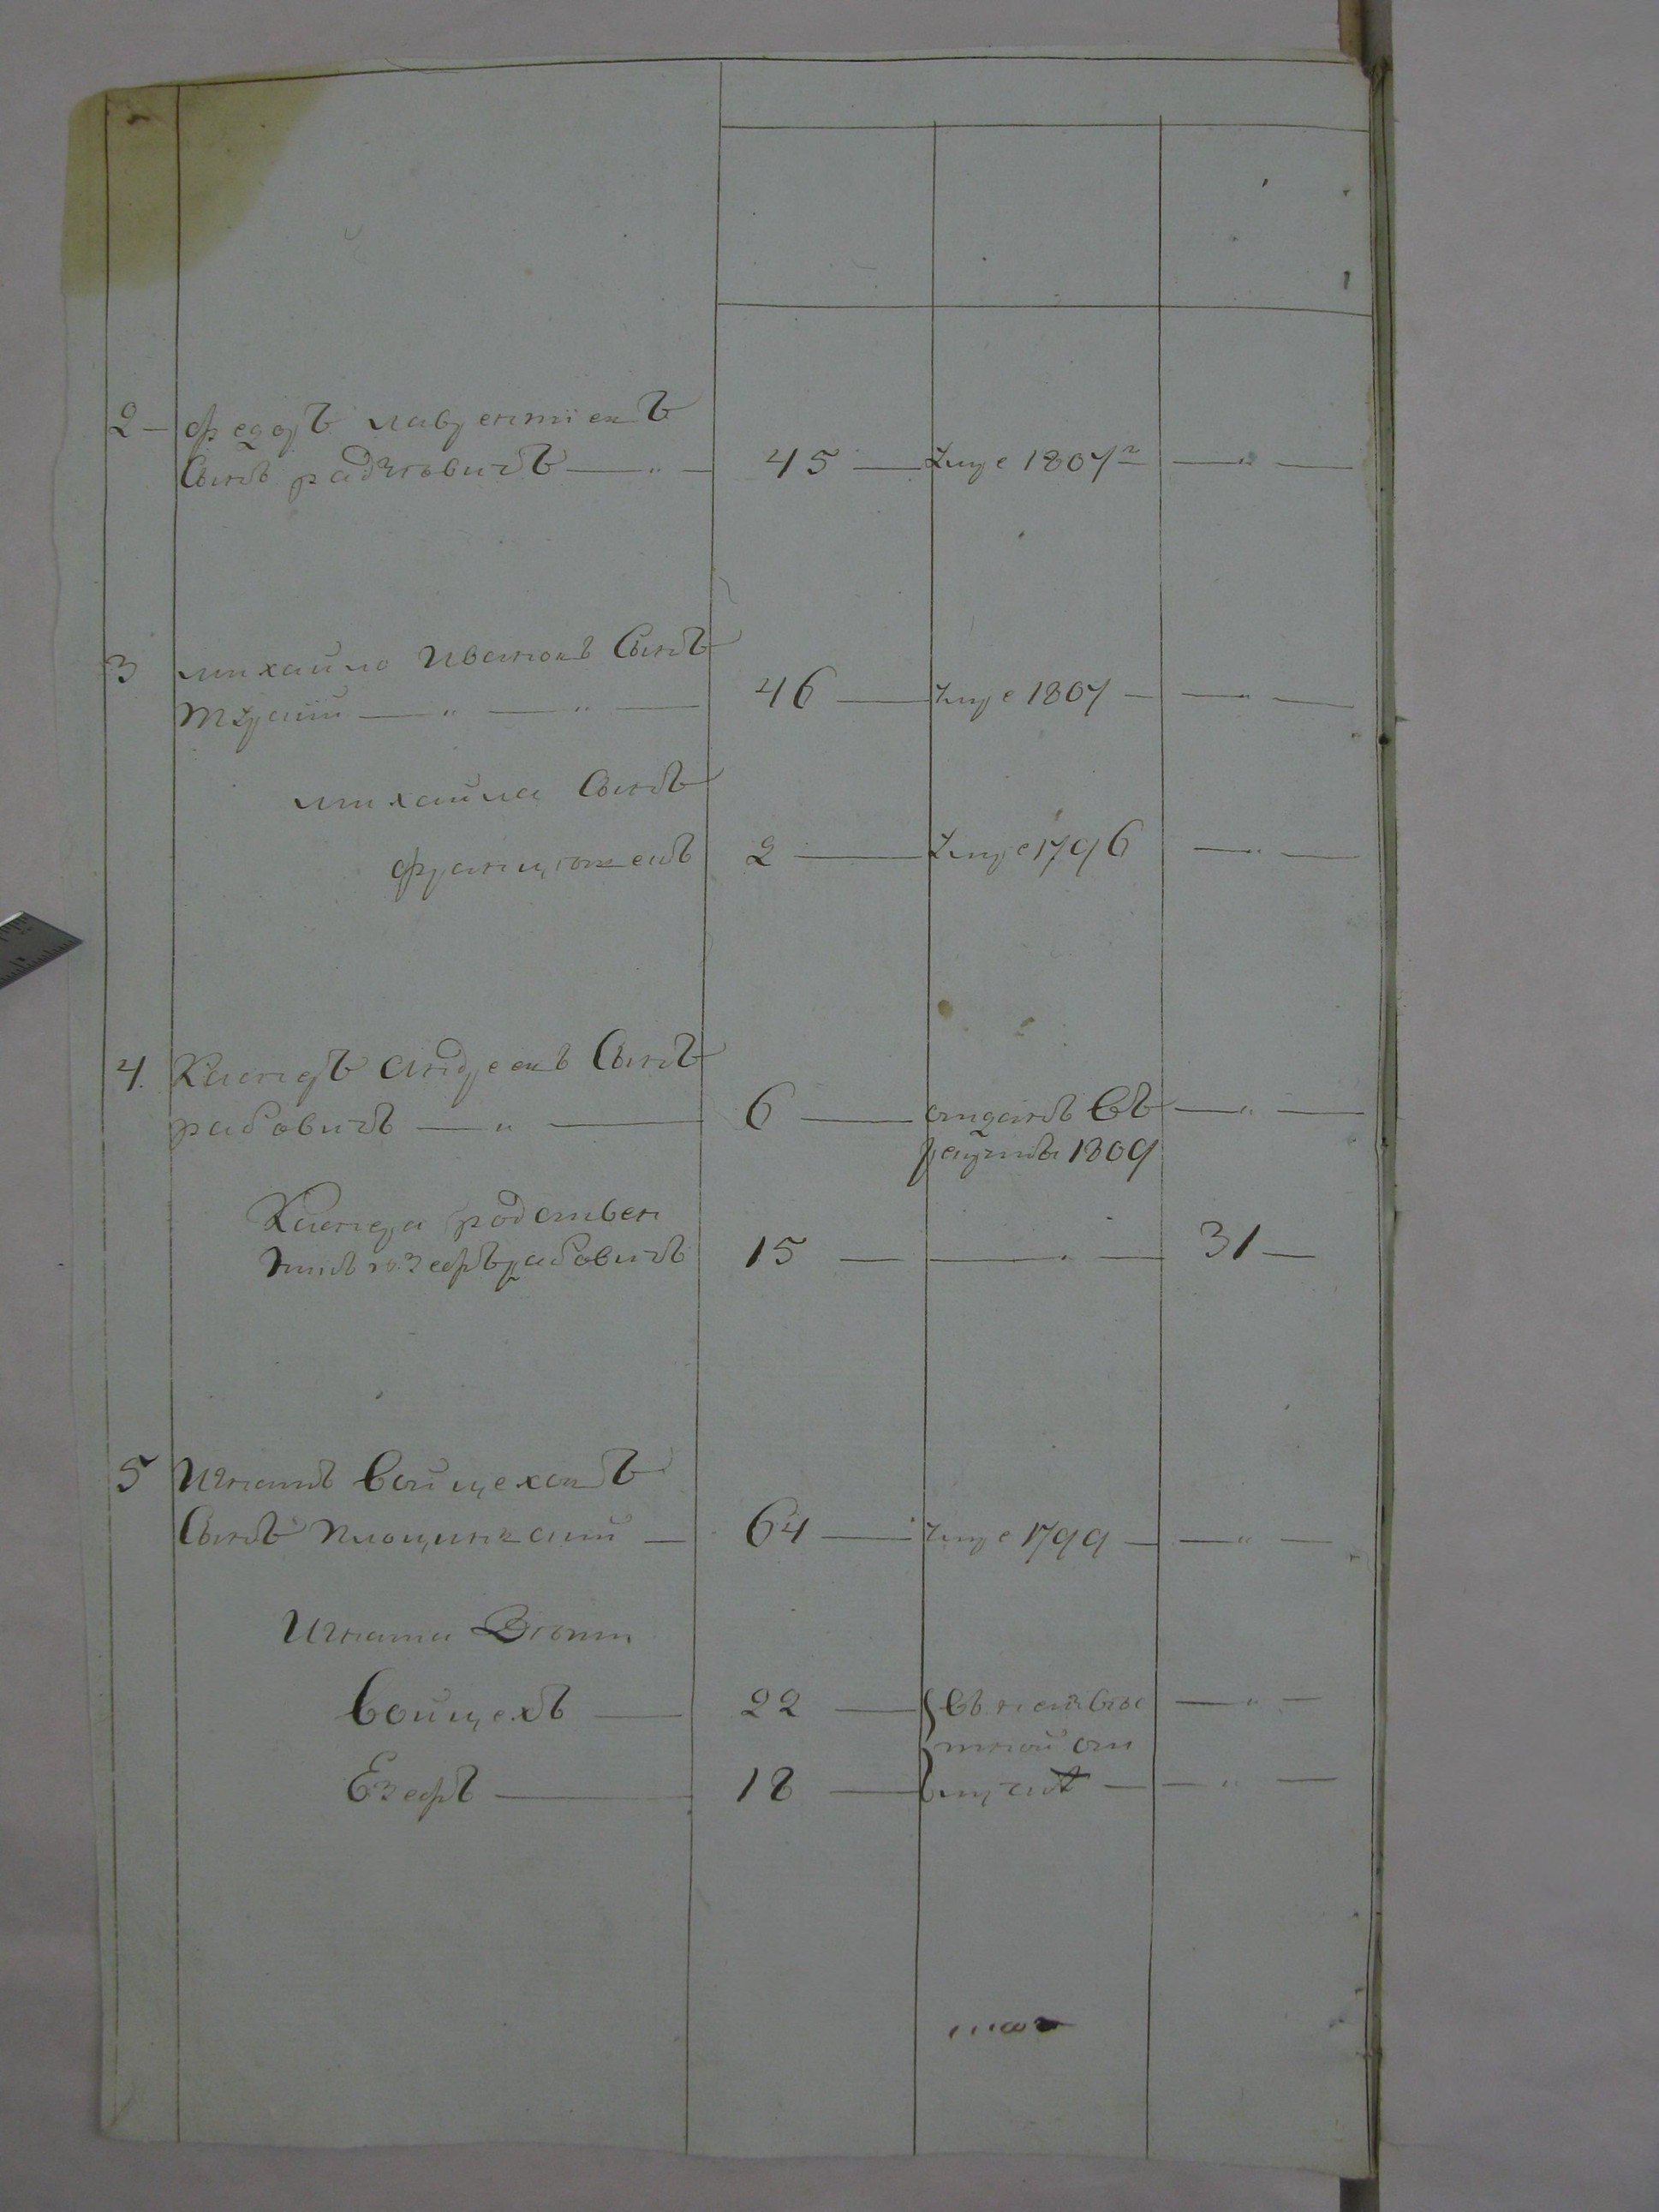 2 — федоръ лаврентіевъ
Сынъ радзновичъ — " — 45 — умре 1807 г — " —
3 михайло Ивановъ Сынъ
46 — умре 1807 — — " —
михайла Сынъ
францышекъ 2 — умре 1796 — " —
4. Кондратъ андреевъ Сынъ
рабовичъ — " — 6 — отданъ въ — " —
рекруты 1809
родствен
никъ юзефъ рабовичъ 15 — — " — 31 —
5 Игнатъ войцеховъ
Сынъ площинский — 64 — умре 1799 — — " —
Игната Дети
войцехъ — 22 — въ неизвес — " —
тной от
Езефъ — 18 — лучкѣ — — " —